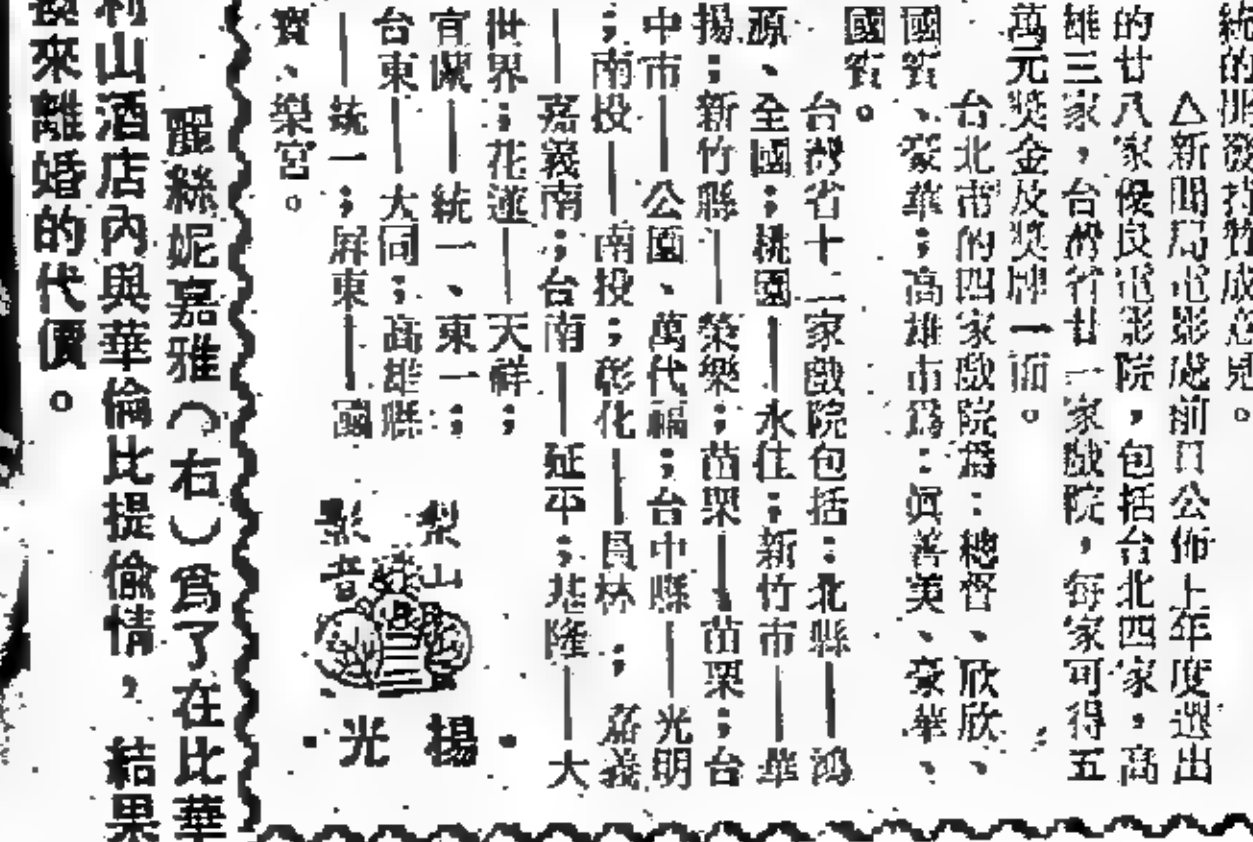 統的
成意見。
△新聞局電影處前日公佈上年度選出
的廿八家優良電影院，包括台北四家，高
雄三家，台灣省廿一家戲院，每家可得五
萬元獎金及獎牌一面。
台北市的四家戲院為：總督、欣欣、
國賓、豪華；高雄市為：真善美、豪華、
國賓。
台灣省十二家戲院包括：北縣—鴻
源、全國；桃園—永住；新竹市—華
揚；新竹縣—榮樂；苗栗—苗栗；台
中市—公園、萬代福；台中縣—光明
；南投—南投；彰化—員林；嘉義
—嘉義南；台南—延平；基隆—大
世界；花蓮—天祥；
宜蘭—統一、東一；
台東—大同；高雄縣
—統一；屏東—國
寶、樂宮。
梨山
影音
·楊光·
麗絲妮嘉雅（右）為了在比華
利山酒店內與華倫比提偷情，結果
換來離婚的代價。